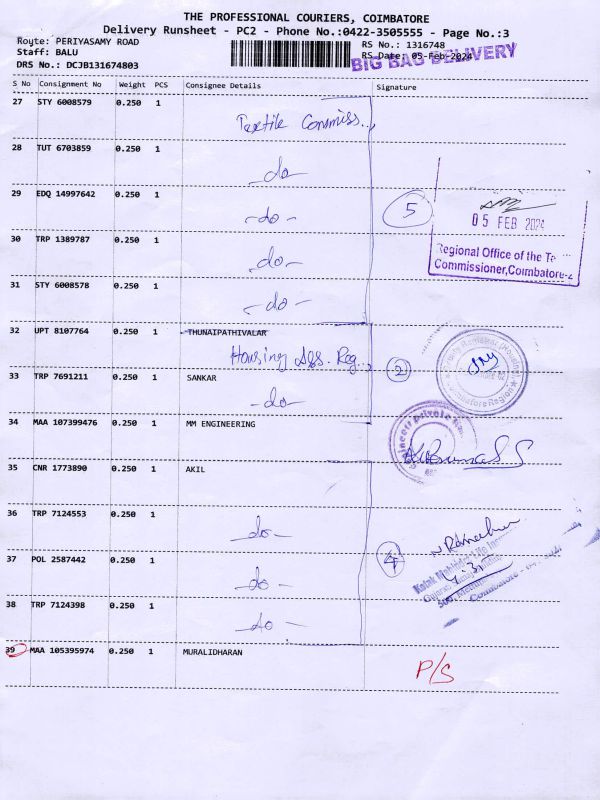 THE PROFESSIONAL COURIERS, COIMBATORE
Delivery Runsheet - PC2 - Phone No.:0422-3505555 - Page No.:3
Royte: PERIYASAMY ROAD
RS No.: 1316748
Staff: BALU
RS Date: 05-Feb-2024
BIG BAG DELIVERY
DRS No.: DCJB131674803
S No Consignment No Weight PCS Consignee Details Signature
27 STY 6008579 0.250 1
Textile Commiss..
28 TUT 6703859 0.250 1
-do-
29 EDQ 14997642 0.250 1
-do-
5
05 FEB 2024
30 TRP 1389787 0.250 1
-do-
Regional Office of the Te
Commissioner,Coimbatore-2
31 STY 6008578 0.250 1
-do-
32 UPT 8107764 0.250 1 THUNAIPATHIVALAR
Housing Reg.
2
33 TRP 7691211 0.250 1 SANKAR
-do-
34 MAA 107399476 0.250 1 MM ENGINEERING
35 CNR 1773890 0.250 1 AKIL
36 TRP 7124553 0.250 1
-do-
37 POL 2587442 0.250 1
-do-
4
Kotak Mahindra Life
Coimbatore
38 TRP 7124398 0.250 1
-do-
39 MAA 105395974 0.250 1 MURALIDHARAN
P/S